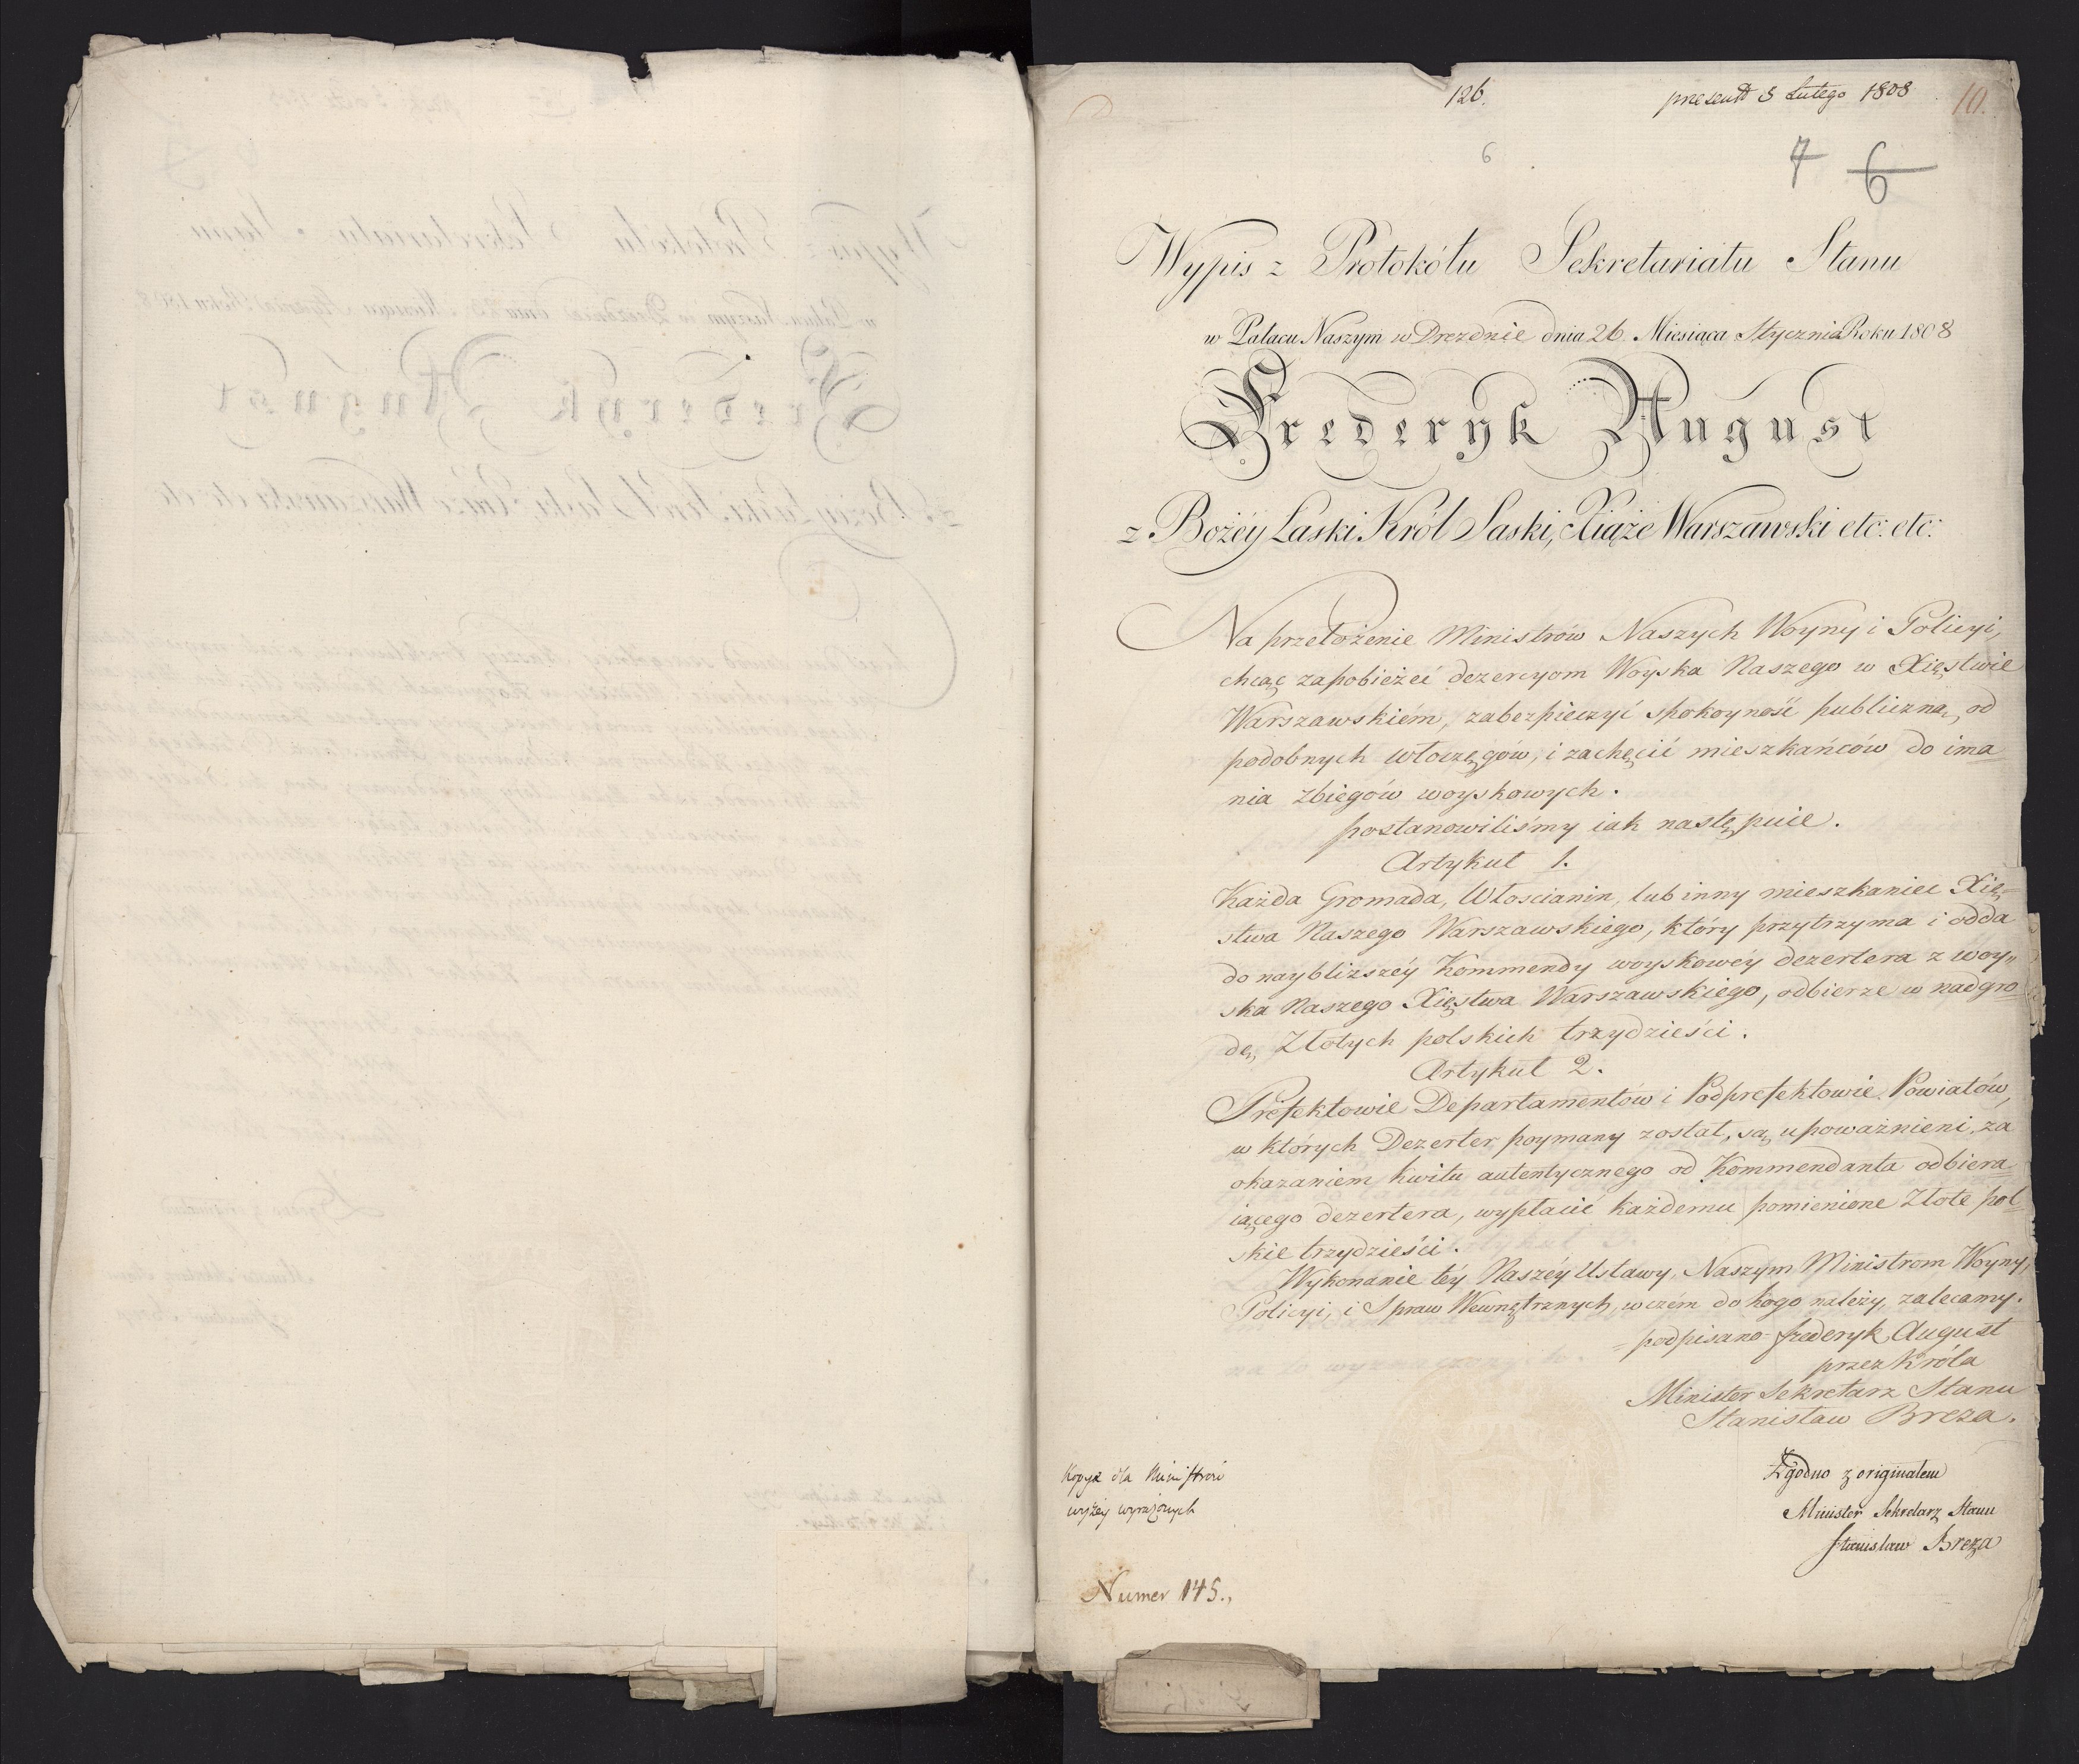 126.
presentt 3 Lutego 1808
10.
6
7 6
Wypis z Protokółu Sekretariatu Stanu
w Pałacu Naszym w Dreznie dnia 26 Miesiąca Stycznia Roku 1808
Frederyk August
z Bożéy Łaski Król Saski, Xiąże Warszawski etc: etc:
Na przełożenie Ministrów Naszych Woyny i Policyi,
chcąc zapobieżeć dezercyom Woyska Naszego w Xięstwie
Warszawskiém, zabezpieczyć spokoyność publiczną od
podobnych włoczęgów, i zachęcić mieszkańców do ima=
nia zbiegów woyskowych.
postanowiliśmy iak następuie.
Artykuł 1.
Każda Gromada, Włoscianin, lub inny mieszkaniec Xię=
stwa Naszego Warszawskiego, który przytrzyma i odda
do naybliższéy Kommendy woyskowéy dezertera z woy„
ska Naszego Xięstwa Warszawskiego, odbierze w nadgro=
dę, Złotych polskich trzydzieści.
Artykuł 2.
Prefektowie Departamentów i Podprefektowie Powiatów,
w których Dezerter poymany został, są upoważnieni, za
okazaniem kwitu autentycznego od Kommendanta odbiera=
iącego dezertera, wypłacić każdemu pomienione Złote pol=
skie trzydzieści.
Wykonanie téy Naszéy Ustawy, Naszym Ministrom Woyny,
Policyi, i Spraw Wewnętrznych, w czém do kogo należy, zalecamy.
=podpisano= Frederyk August
przez Króla
Minister Sekretarz Stanu
Stanisław Breza.
Kopya dla Ministrow
wyżey wyrażonych
Zgodno z originałem
Minister Sekretarz Stanu
Stanisław Breza
Numer 145.,